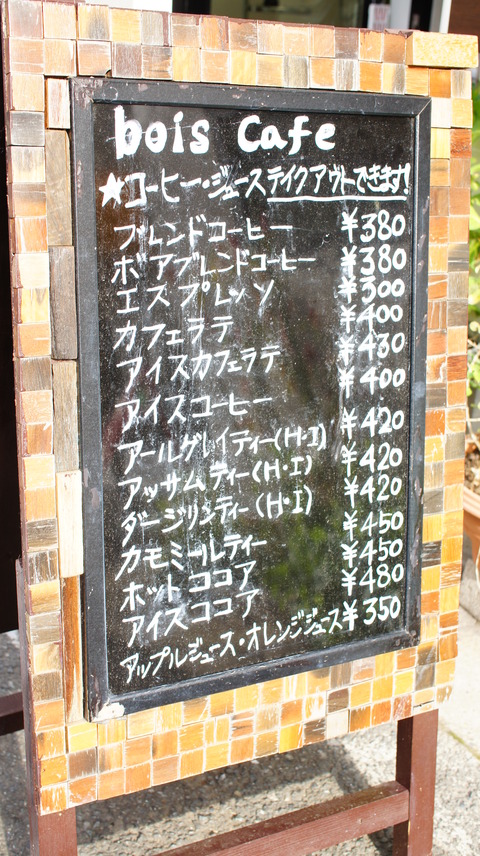 bois Cafe
★コーヒー・ジューステイクアウトできます!
ブレンドコーヒー ¥380
ボアブレンドコーヒー ¥380
エスプレッソ ¥300
カフェラテ ¥400
アイスカフェラテ ¥430
アイスコーヒー ¥400
アールグレイティー(H・I) ¥420
アッサムティー(H・I) ¥420
ダージリンティー(H・I) ¥420
カモミールティー ¥450
ホットココア ¥450
アイスココア ¥480
アップルジュース・オレンジジュース ¥350